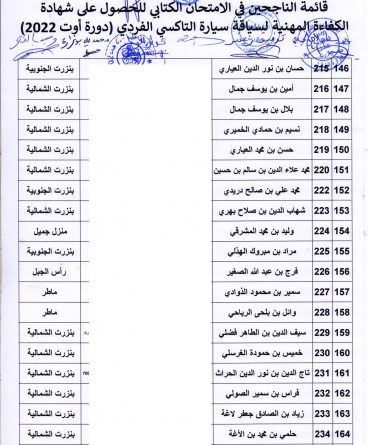 قائمة الناجحين في الامتحان الكتابي للحصول على شهادة
الكفاءة المهنية لسياقة سيارة التاكسي الفردي (دورة أوت 2022)
146 215 حسان بن نور الدين العياري بنزرت الجنوبية
147 216 أمين بن يوسف جمال بنزرت الشمالية
148 217 بلال بن يوسف جمال بنزرت الشمالية
149 218 نسيم بن حمادي الخميري بنزرت الشمالية
150 219 حسن بن محمد العياري بنزرت الشمالية
151 220 محمد علاء الدين بن سالم بن حسين بنزرت الشمالية
152 222 محمد علي بن صالح دريدي بنزرت الجنوبية
153 223 شهاب الدين بن صلاح بهري بنزرت الشمالية
154 224 وليد بن محمد المشرقي منزل جميل
155 225 مراد بن مبروك الهذلي بنزرت الجنوبية
156 226 فرج بن عبد الله الصغير رأس الجبل
157 227 سمير بن محمود الذوادي ماطر
158 228 وائل بن بلحى الرياحي ماطر
159 229 سيف الدين بن الطاهر فضلي بنزرت الشمالية
160 230 خميس بن حمودة الغرسلي بنزرت الجنوبية
161 231 تاج الدين بن نور الدين الحراث بنزرت الشمالية
162 232 فراس بن سمير الصولي بنزرت الشمالية
163 233 زياد بن الصادق جعفر لاغة بنزرت الشمالية
164 234 حلمي بن محمد بن الأغة بنزرت الشمالية